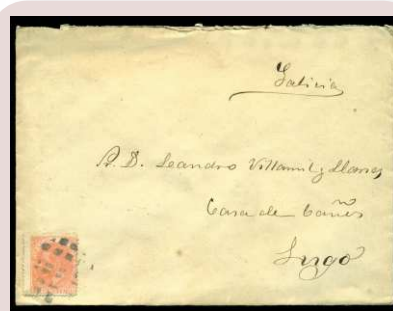 Galicia
A. D. Leandro Villamil y Llanes
Casa de baños
Lugo